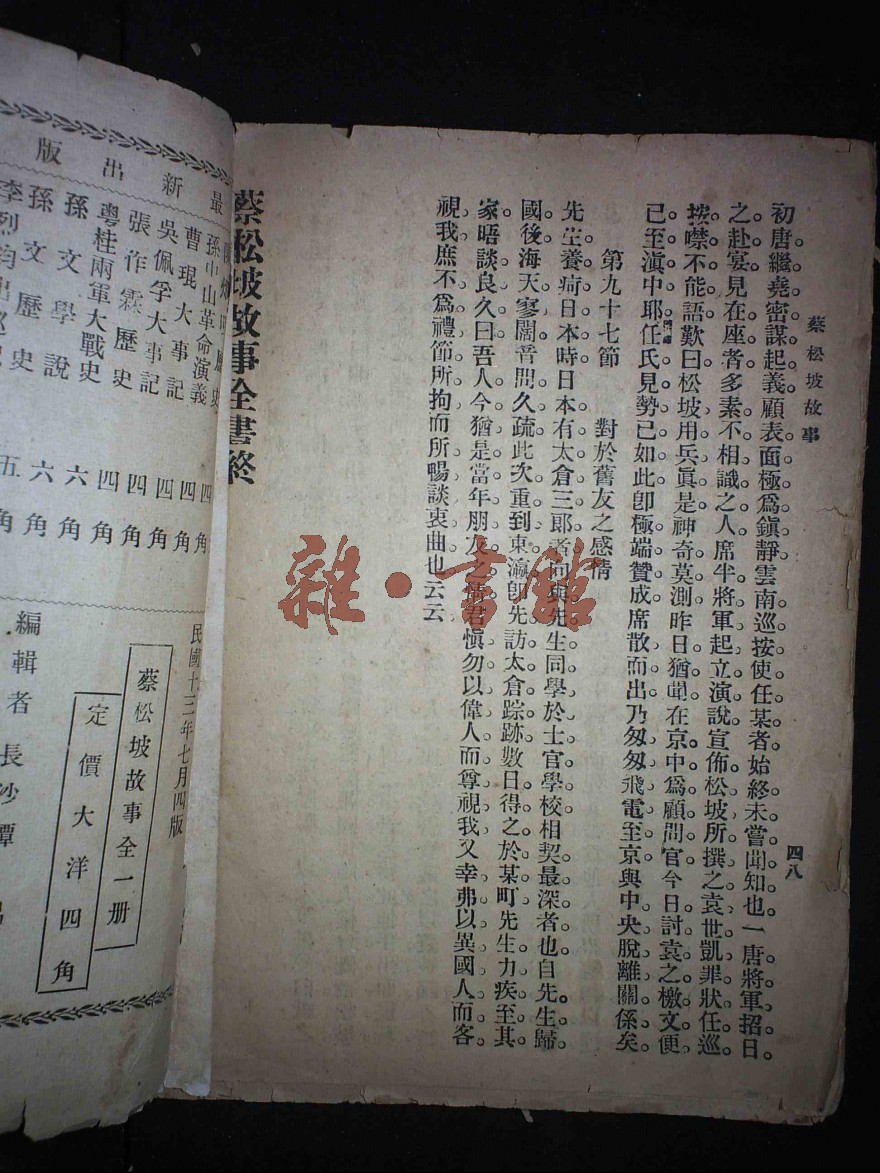 蔡松坡故事
四八
初唐繼堯密謀起義顧表面極爲鎭靜雲南巡按使任某者始終未嘗聞知也一唐將軍招日
之赴宴見在座者多素不相識之人席半將軍起立演說宣佈松坡所撰之袁世凱罪狀任巡
按噤不能語歎曰松坡用兵眞是神奇莫測昨日猶聞在京中爲顧問官今日討袁之檄文便
已至滇中耶任氏見勢已如此卽極端贊成席散而出乃匆匆飛電至京與中央脫離關係矣
第九十七節 對於舊友之感情
先生養疴日本時日本有太倉三郞者向與先生同學於士官學校相契最深者也自先生歸
國後海天寥闊音問久疏此次重到東瀛卽先訪太倉踪跡數日得之於某町先生力疾至其
家晤談良久曰吾人今猶是當年朋友之情君愼勿以偉人而尊視我又幸弗以異國人而客
視我庶不爲禮節所拘而所暢談衷曲也云云
蔡松坡故事全書終
雜·書館
最新出版
孫中山革命演義 四角
曹琨大事記 四角
吳佩孚大事記 四角
張作霖歷史 四角
粵桂兩軍大戰史 四角
孫文學說 六角
孫文歷史 六角
李烈鈞出巡 五角
民國十三年七月四版
蔡松坡故事全一册
定價大洋四角
編輯者長沙譚